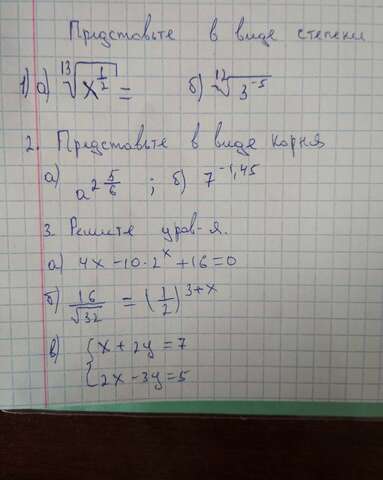 Представьте в виде степени
1) а) ¹³√(x^(1/2)) = б) ¹²√(3⁻⁵)
2. Представьте в виде корня
а) a^(2 5/6) ; б) 7^(-1,45)
3. Решите урав-я.
а) 4x - 10 · 2^x + 16 = 0
б) 16/√32 = (1/2)^(3+x)
в) { x + 2y = 7
{ 2x - 3y = 5